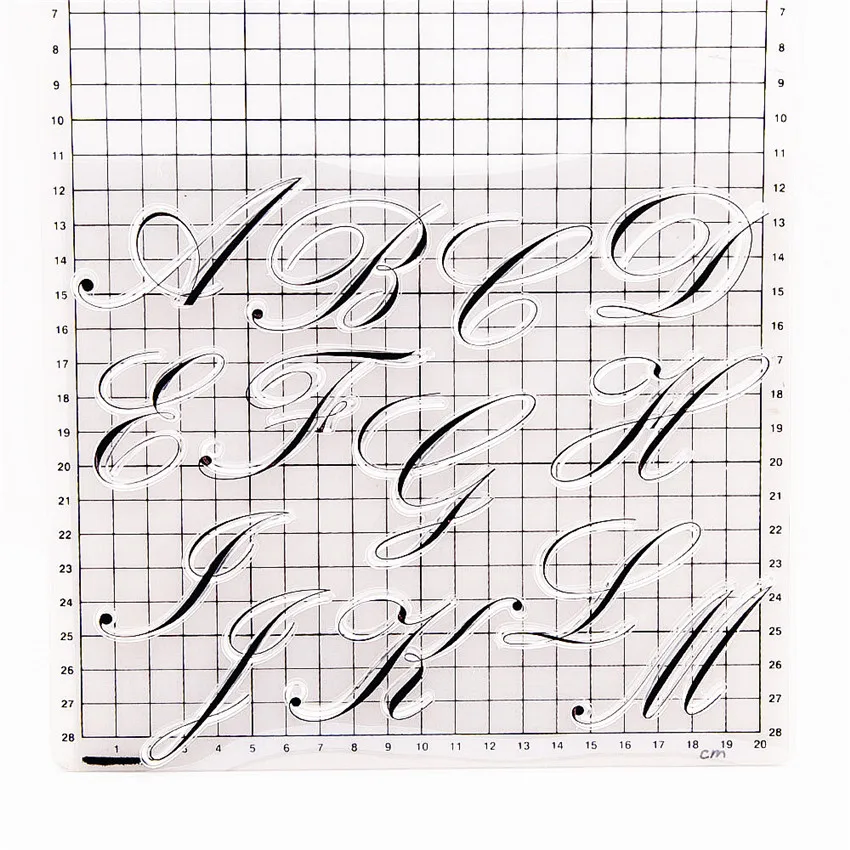 7 7
8 8
9 9
10 10
11 11
12 12
A B C D
13 13
14 14
15 15
16 16
17 7
E F G H
18 18
19 19
20 20
21 21
22 22
I L
23 23
24 24
J K M
25 25
26 26
27 27
28 28
1 3 4 5 6 7 8 9 10 11 12 13 14 15 16 17 18 19 20
cm